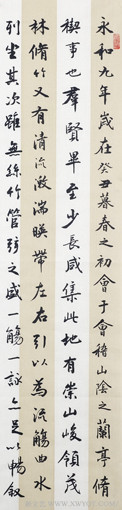 永和九年歲在癸丑暮春之初會于會稽山陰之蘭亭脩
禊事也群賢畢至少長咸集此地有崇山峻領茂
林脩竹又有清流激湍暎帶左右引以為流觴曲水
列坐其次雖無絲竹管弦之盛一觴一詠亦足以暢叙